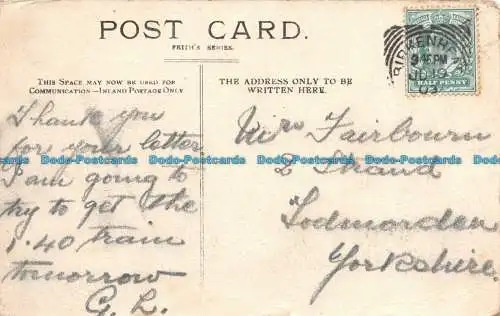 POST CARD.
FRITH'S SERIES.
THIS SPACE MAY NOW BE USED FOR
COMMUNICATION—INLAND POSTAGE ONLY
THE ADDRESS ONLY TO BE
WRITTEN HERE.
BIRKENHEAD
HALF PENNY
Thank you
for your letter
I am going to
try to get the
1.40 train
tomorrow
G. L.
Fairbourn
2 Strand
Todmorden
Yorkshire.
Dodo-Postcards Dodo-Postcards Dodo-Postcards Dodo-Postcards